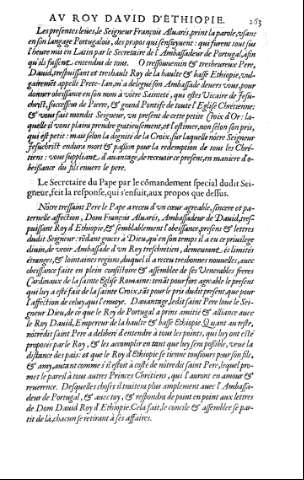 AV ROY DAVID D'ETHIOPIE. 263
Les presentes leües, le Seigneur François Aluarés, print la parole, usans
en son langage Portugalois, des propos qui s'ensuyuent: qui furent tout sus
l'heure mis en Latin par le Secretaire de l'Ambassadeur de Portugal, afin
qu'ils fussent entendus de tous. O tressouuerain & tresheureux Pere,
Dauid, trespuissant et treshault Roy de la haulte & basse Ethiopie, vul-
gairement appelé Prete-Ian, m'a delegué son Ambassade deuers vous, pour
donner obeissance en son nom à votre Sainteté, qui estes Vicaire de Iesu-
christ, successeur de Pierre, & grand Pontife de toute l'Eglise Chrétienne:
& vous fait monder Seigneur, un present de cette petite Croix d'Or: la-
quelle il vous plaira prendre gratieusement, et l'estimer, non selon son pris,
qui est petit: mais selon la dignité de la Croix, sur laquelle nôtre Seigneur
Iesuchrist endura mort & passion pour la redemption de tous les Chré-
tiens: vous suppliant, d'auantage, de receuoir ce present, en maniere d'o-
beissance du fils enuers le pere.
Le Secretaire du Pape par le cômandement special dudit Sei-
gneur, feit la response, qui s'ensuit, aux propos que dessus.
Nôtre tressaint Pere le Pape a receu d'un cœur agreable, sincere et pa-
ternelle affection, Dom François Aluarés, Ambassadeur de Dauid, tres-
puissant Roy d'Ethiopie, & semblablement l'obeissance, presens & lettres
dudit Seigneur: rédant graces à Dieu, qui en son temps il a eu ce priuilege
diuin, de veoir Ambassade d'un Roy tresChrétien, demeurant, és limites
étranges, & lointaines regions, duquel il a receu tresbonnes nouuelles, auec
obeissance faite en plein consistoire & assemblee de ses Venerables freres
Cardinaux de la sainte Eglise Romaine: tenãt pour fort agreable le present
qui luy a esté fait de la sainte Croix, tãt pour le pris dudit present, que pour
l'affection de celuy, qui l'enuoye. Dauantage, ledit saint Pere louë le Sei-
gneur Dieu, de ce que le Roy de Portugal a prins amitié & alliance auec
le Roy Dauid, Empereur de la haulte & basse Ethiopie. Quant au reste,
nôtredit saint Pere a deliberé d'entendre à tous les points, qui luy ont esté
proposés par le Roy, & les accomplir en tant que luy sera possible, veuë la
distance des païs: et que le Roy d'Ethiopie se tienne tousiours pour son fils,
& amy, autant comme s'il estoit à costé de nôtredit saint Pere, lequel pro-
met le pareil à tous autres Princes Chrétiens, qui l'auront en amour &
reuerence. Desquelles choses il traitera plus amplement auec l'Ambassa-
deur de Portugal, & auec toy, & respondra de point en point aux lettres
de Dom Dauid Roy d'Ethiopie. Cela fait, le concile & assemblee se par-
tit de là, chacun se retirant à ses affaires.